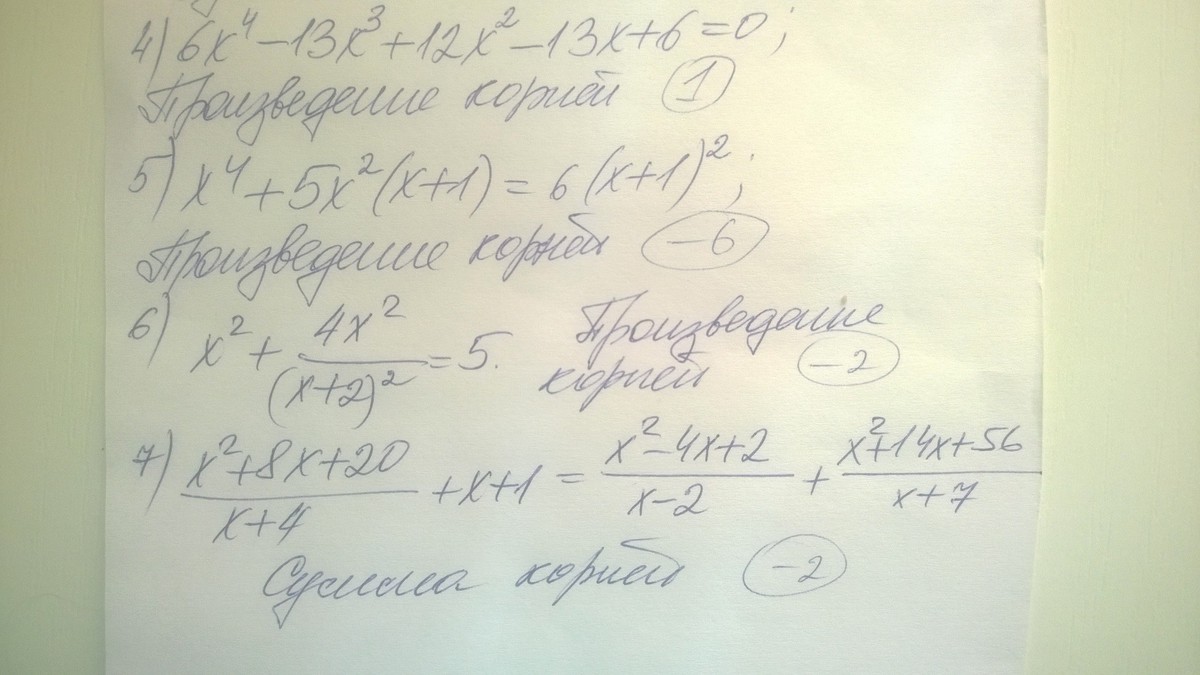 4) 6x⁴ – 13x³ + 12x² – 13x + 6 = 0;
Произведение корней 1
5) x⁴ + 5x²(x+1) = 6(x+1)²;
Произведение корней –6
6) x² + 4x²/(x+2)² = 5. Произведение
корней –2
7) (x²+8x+20)/(x+4) + x+1 = (x²–4x+2)/(x–2) + (x²+14x+56)/(x+7)
Сумма корней –2